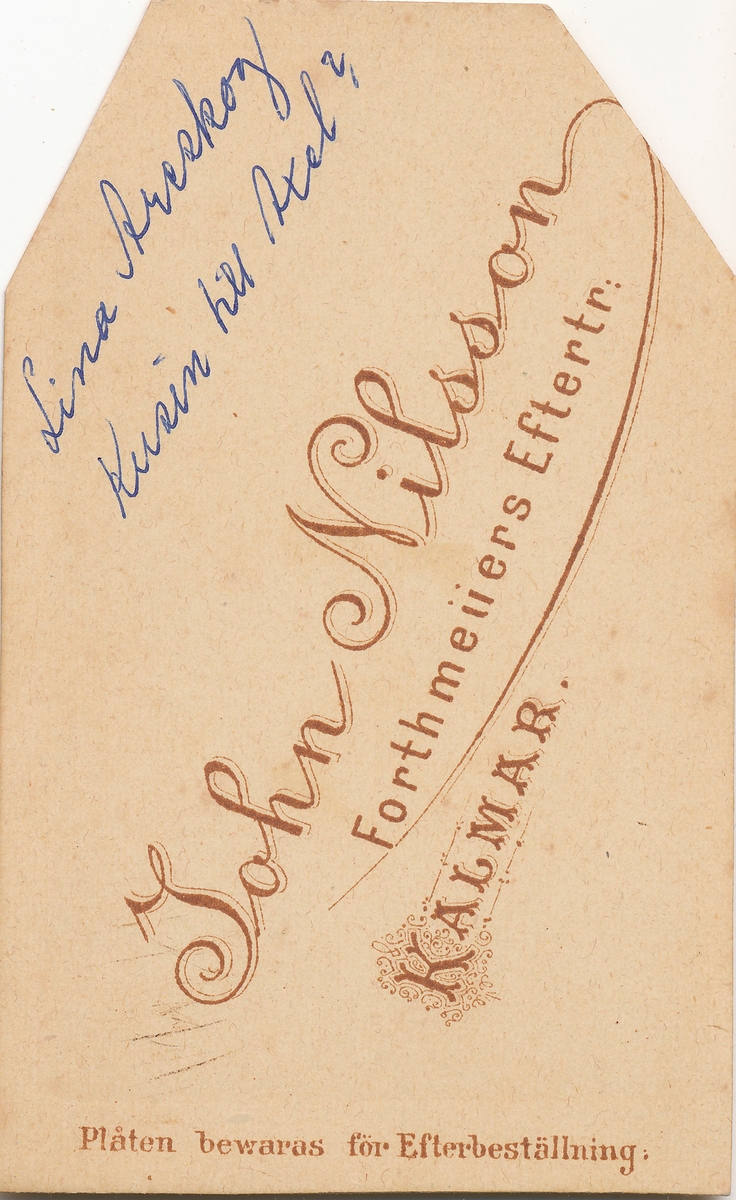 Lina Areskog
Kusin till Axel?
John Nilsson
Forthmeiiers Eftertr:
KALMAR.
Plåten bewaras för Efterbeställning: